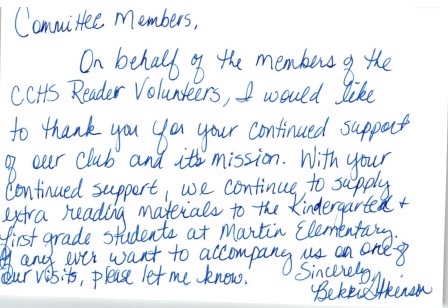 Committee Members,
On behalf of the members of the
CCHS Reader Volunteers, I would like
to thank you for your continued support
of our club and its mission. With your
continued support, we continue to supply
extra reading materials to the Kindergarten +
first grade students at Martin Elementary.
If any ever want to accompany us on one of
our visits, please let me know.
Sincerely,
Bekki Atkinson